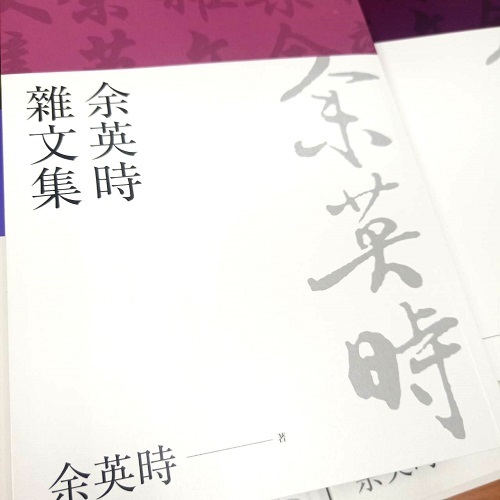 余英時
雜文集
余英時
余英時 著